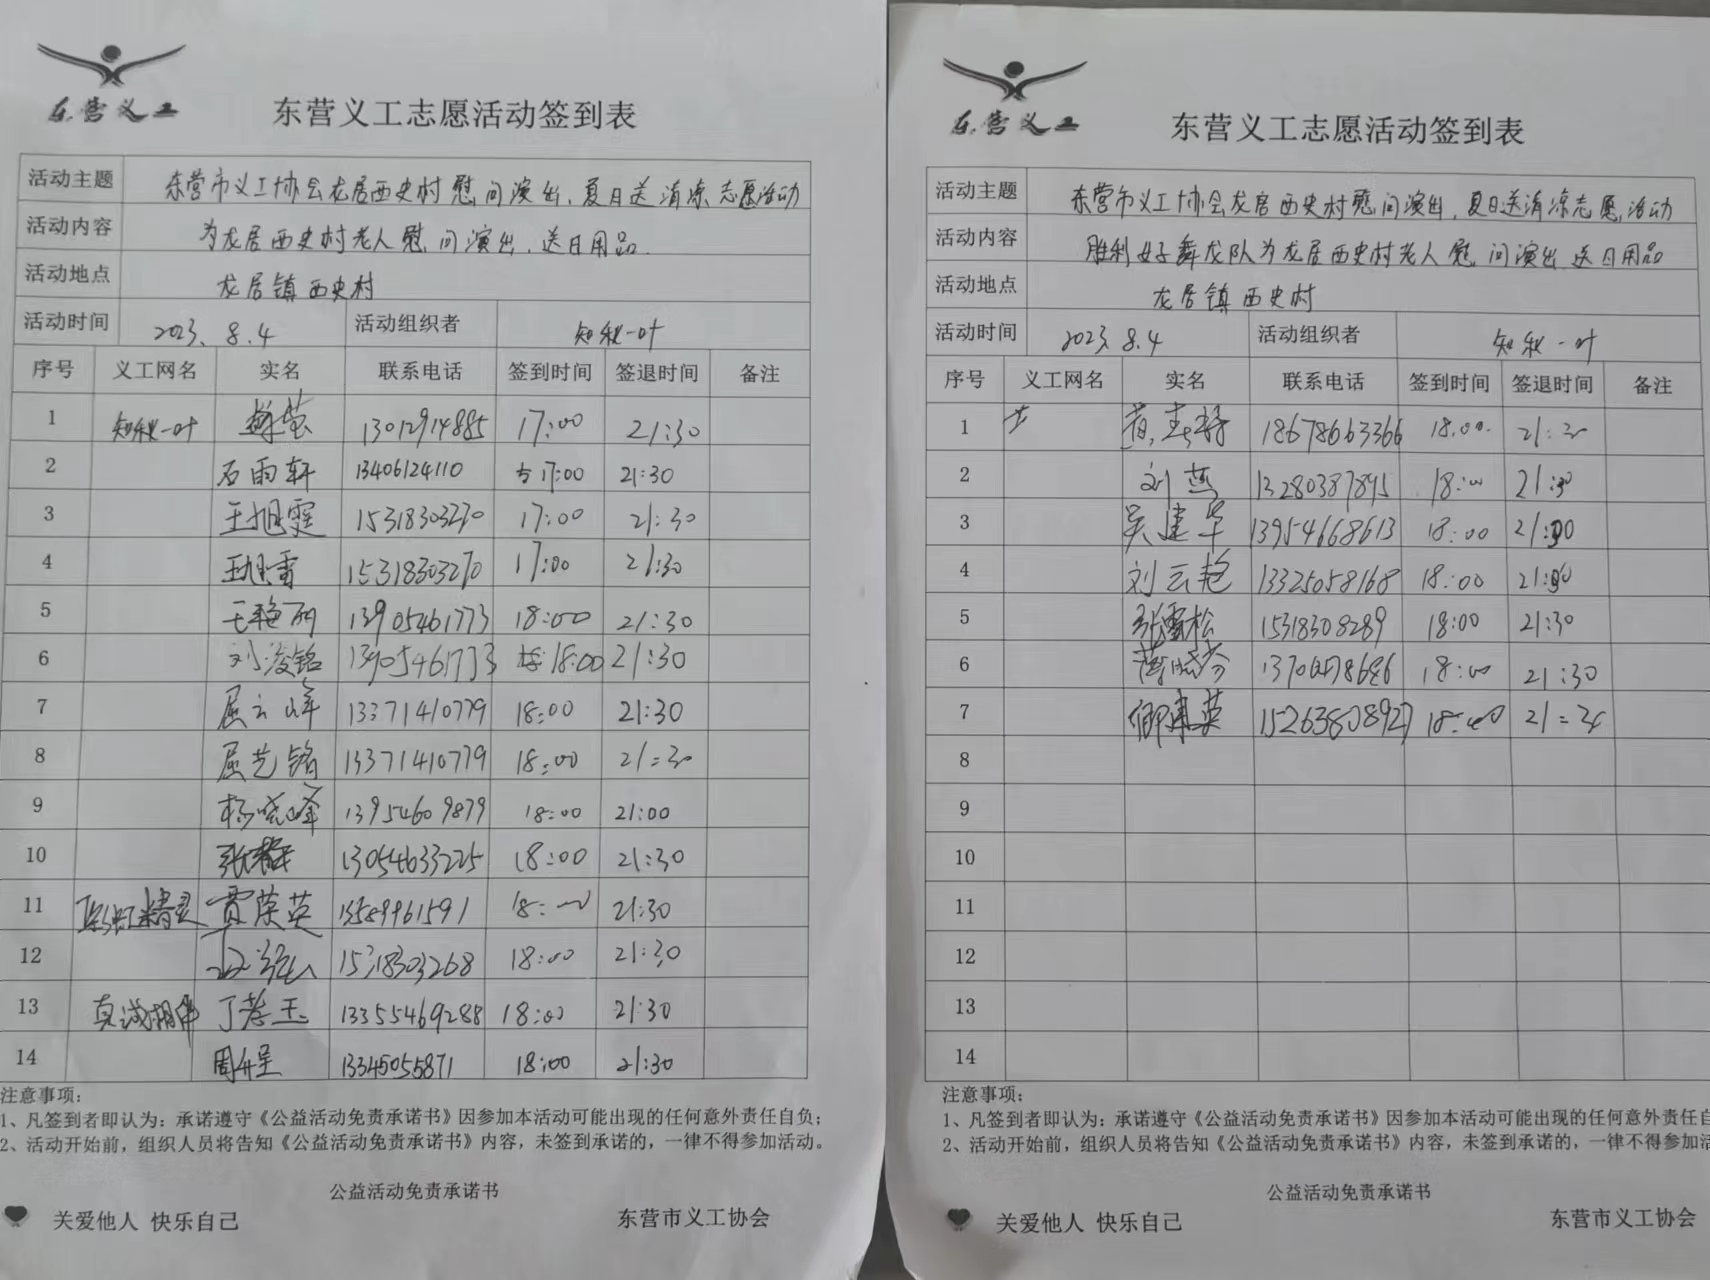 东营义工
东营义工志愿活动签到表
活动主题 东营市义工协会龙居西史村慰问演出、夏日送清凉志愿活动
活动内容 为龙居西史村老人慰问演出、送日用品
活动地点 龙居镇西史村
活动时间 2023.8.4 活动组织者 知秋一叶
序号 义工网名 实名 联系电话 签到时间 签退时间 备注
1 知秋一叶 13012914885 17:00 21:30
2 石雨轩 13406124110 17:00 21:30
3 王旭霆 15318303270 17:00 21:30
4 王旭雷 15318303270 17:00 21:30
5 王艳丽 13905461773 18:00 21:30
6 刘浚铭 13905461773 18:00 21:30
7 屈云峰 13371410779 18:00 21:30
8 屈艺铭 13371410779 18:00 21:30
9 杨晓峰 13954609879 18:00 21:00
10 13054633225 18:00 21:30
11 精灵 贾荣英 13589961591 18:00 21:30
12 15318303268 18:00 21:30
13 真诚相伴 丁孝玉 13355469288 18:00 21:30
14 13345055871 18:00 21:30
注意事项：
1、凡签到者即认为：承诺遵守《公益活动免责承诺书》因参加本活动可能出现的任何意外责任自负；
2、活动开始前，组织人员将告知《公益活动免责承诺书》内容，未签到承诺的，一律不得参加活动。
公益活动免责承诺书
关爱他人 快乐自己 东营市义工协会
东营义工
东营义工志愿活动签到表
活动主题 东营市义工协会龙居西史村慰问演出、夏日送清凉志愿活动
活动内容 胜利女子舞龙队为龙居西史村老人慰问演出 送日用品
活动地点 龙居镇西史村
活动时间 2023.8.4 活动组织者 知秋一叶
序号 义工网名 实名 联系电话 签到时间 签退时间 备注
1 18678663366 18:00 21:30
2 刘燕 13280387895 18:00 21:30
3 吴建华 13954668613 18:00 21:30
4 刘云艳 13325058168 18:00 21:30
5 张雪松 15318308289 18:00 21:30
6 18:00 21:30
7 15263808927 18:00 21:30
8
9
10
11
12
13
14
注意事项：
1、凡签到者即认为：承诺遵守《公益活动免责承诺书》因参加本活动可能出现的任何意外责任自
2、活动开始前，组织人员将告知《公益活动免责承诺书》内容，未签到承诺的，一律不得参加活
公益活动免责承诺书
关爱他人 快乐自己 东营市义工协会